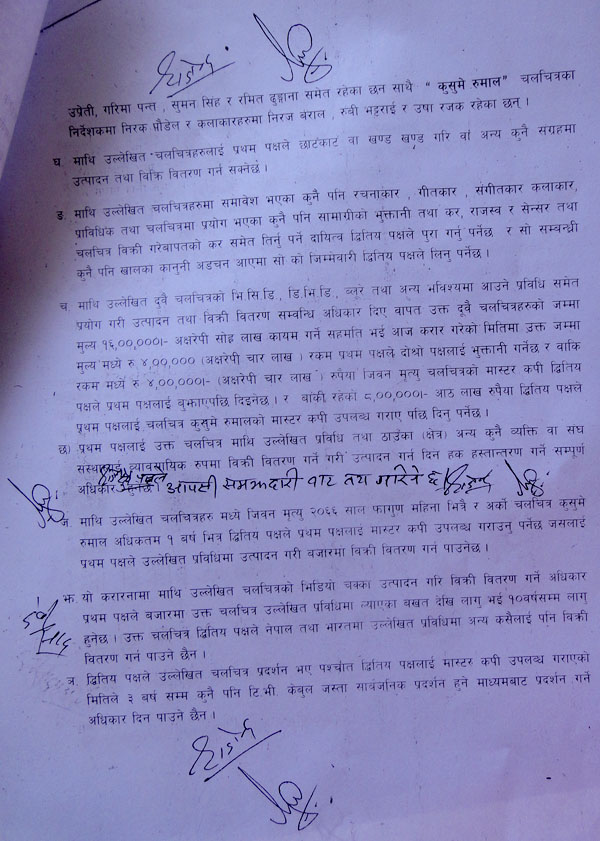 उप्रेती, गरिमा पन्त , सुमन सिंह र रमित ढुङ्गाना समेत रहेका छन साथै " कुसुमे रुमाल" चलचित्रका
निर्देशकमा निरक पौडेल र कलाकारहरुमा निरज बराल , रुबी भट्टराई र उषा रजक रहेका छन् ।
घ. माथि उल्लेखित चलचित्रहरुलाई प्रथम पक्षले छाटकाट वा खण्ड खण्ड गरि वां अन्य कुनै संग्रहमा
उत्पादन तथा विक्रि वितरण गर्न सक्नेछ ।
ङ. माथि उल्लेखित चलचित्रहरुमा समावेश भएका कुनै पनि रचनाकार , गीतकार , संगीतकार कलाकार,
प्राविधिक तथा चलचित्रमा प्रयोग भएका कुनै पनि सामाग्रीको भुक्तानी तथा कर, राजस्व र सेन्सर तथा
चलचित्र विक्री गरेबापतको कर समेत तिर्नु पर्ने दायित्व द्वितिय पक्षले पुरा गर्नु पर्नेछ र सो सम्बन्धी
कुनै पनि खालका कानुनी अडचन आएमा सो को जिम्मेवारी द्वितिय पक्षले लिनु पर्नेछ ।
च. माथि उल्लेखित दुवै चलचित्रको भि.सि.डि , डि.भि.डि , ब्लूरे तथा अन्य भविश्यमा आउने प्रविधि समेत
प्रयोग गरी उत्पादन तथा विक्री वितरण सम्वन्धि अधिकार दिए वापत उक्त दूवै चलचित्रहरुको जम्मा
मुल्य १६,००,०००।- अक्षरेपी सोह्र लाख कायम गर्ने सहमति भई आज करार गरेको मितिमा उक्त जम्मा
मुल्य मध्ये रु ४,००,००० (अक्षरेपी चार लाख ) रकम प्रथम पक्षले दोश्रो पक्षलाई भुक्तानी गर्नेछ र वाकि
रकम मध्ये रु ४,००,०००।- (अक्षरेपी चार लाख ) रुपैया जिवन मृत्यु चलचित्रको मास्टर कपी द्वितिय
पक्षले प्रथम पक्षलाई बुझाएपछि दिइनेछ । र बाँकी रहेको ८,००,०००।- आठ लाख रुपैया द्वितिय पक्षले
प्रथम पक्षलाई चलचित्र कुसुमे रुमालको मास्टर कपी उपलब्ध गराए पछि दिनु पर्नेछ ।
छ) प्रथम पक्षलाई उक्त चलचित्र माथि उल्लेखित प्रविधि तथा ठाउँका (क्षेत्र) अन्य कुनै व्यक्ति वा संघ
संस्थालाई व्यावसायिक रुपमा विक्री वितरण गर्ने गरी उत्पादन गर्न दिन हक हस्तान्तरण गर्न सम्पूर्ण
अधिकार हुनेछ । आपसी समझदारी बाट तय गरिने छ
ज. माथि उल्लेखित चलचित्रहरु मध्ये जिवन मृत्यु २०६६ साल फागुण महिना भित्रै र अर्को चलचित्र कुसुमे
रुमाल अधिकतम १ बर्ष भित्र द्वितिय पक्षले प्रथम पक्षलाई मास्टर कपी उपलब्ध गराउनु पर्नेछ जसलाई
प्रथम पक्षले उल्लेखित प्रविधिमा उत्पादन गरी बजारमा विक्री वितरण गर्न पाउनेछ ।
झ. यो करारनामा माथि उल्लेखित चलचित्रको भिडियो चक्का उत्पादन गरि विक्री वितरण गर्ने अधिकार
प्रथम पक्षले बजारमा उक्त चलचित्र उल्लेखित प्रविधिमा ल्याएका बखत देखि लागु भई १०वर्षसम्म लागु
हुनेछ । उक्त चलचित्र द्वितिय पक्षले नेपाल तथा भारतमा उल्लेखित प्रविधिमा अन्य कसैलाई पनि विक्री
वितरण गर्न पाउने छैन ।
ञ. द्वितिय पक्षले उल्लेखित चलचित्र प्रदर्शन भए पश्चात द्वितिय पक्षलाई मास्टर कपी उपलब्ध गराएको
मितिले ३ बर्ष सम्म कुनै पनि टि.भी. केबुल जस्ता सार्वजनिक प्रदर्शन हुने माध्यमबाट प्रदर्शन गर्न
अधिकार दिन पाउने छैन ।